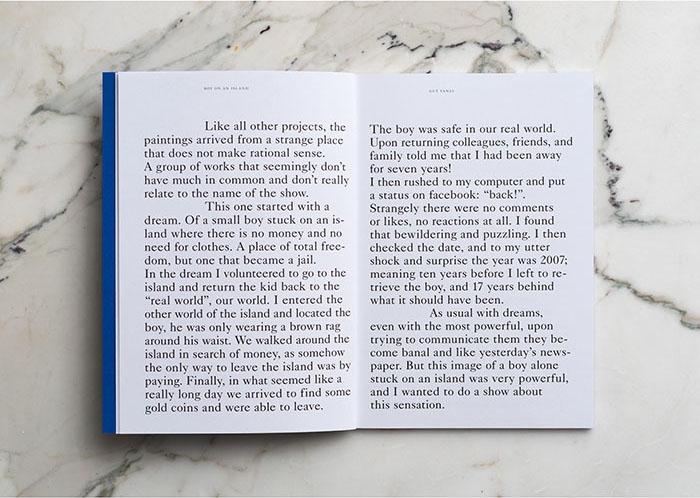 BOY ON AN ISLAND
Like all other projects, the
paintings arrived from a strange place
that does not make rational sense.
A group of works that seemingly don’t
have much in common and don’t really
relate to the name of the show.
This one started with a
dream. Of a small boy stuck on an is-
land where there is no money and no
need for clothes. A place of total free-
dom, but one that became a jail.
In the dream I volunteered to go to the
island and return the kid back to the
“real world”, our world. I entered the
other world of the island and located the
boy, he was only wearing a brown rag
around his waist. We walked around the
island in search of money, as somehow
the only way to leave the island was by
paying. Finally, in what seemed like a
really long day we arrived to find some
gold coins and were able to leave.
GUY YANAI
The boy was safe in our real world.
Upon returning colleagues, friends, and
family told me that I had been away
for seven years!
I then rushed to my computer and put
a status on facebook: “back!”.
Strangely there were no comments
or likes, no reactions at all. I found
that bewildering and puzzling. I then
checked the date, and to my utter
shock and surprise the year was 2007;
meaning ten years before I left to re-
trieve the boy, and 17 years behind
what it should have been.
As usual with dreams,
even with the most powerful, upon
trying to communicate them they be-
come banal and like yesterday’s news-
paper. But this image of a boy alone
stuck on an island was very powerful,
and I wanted to do a show about
this sensation.